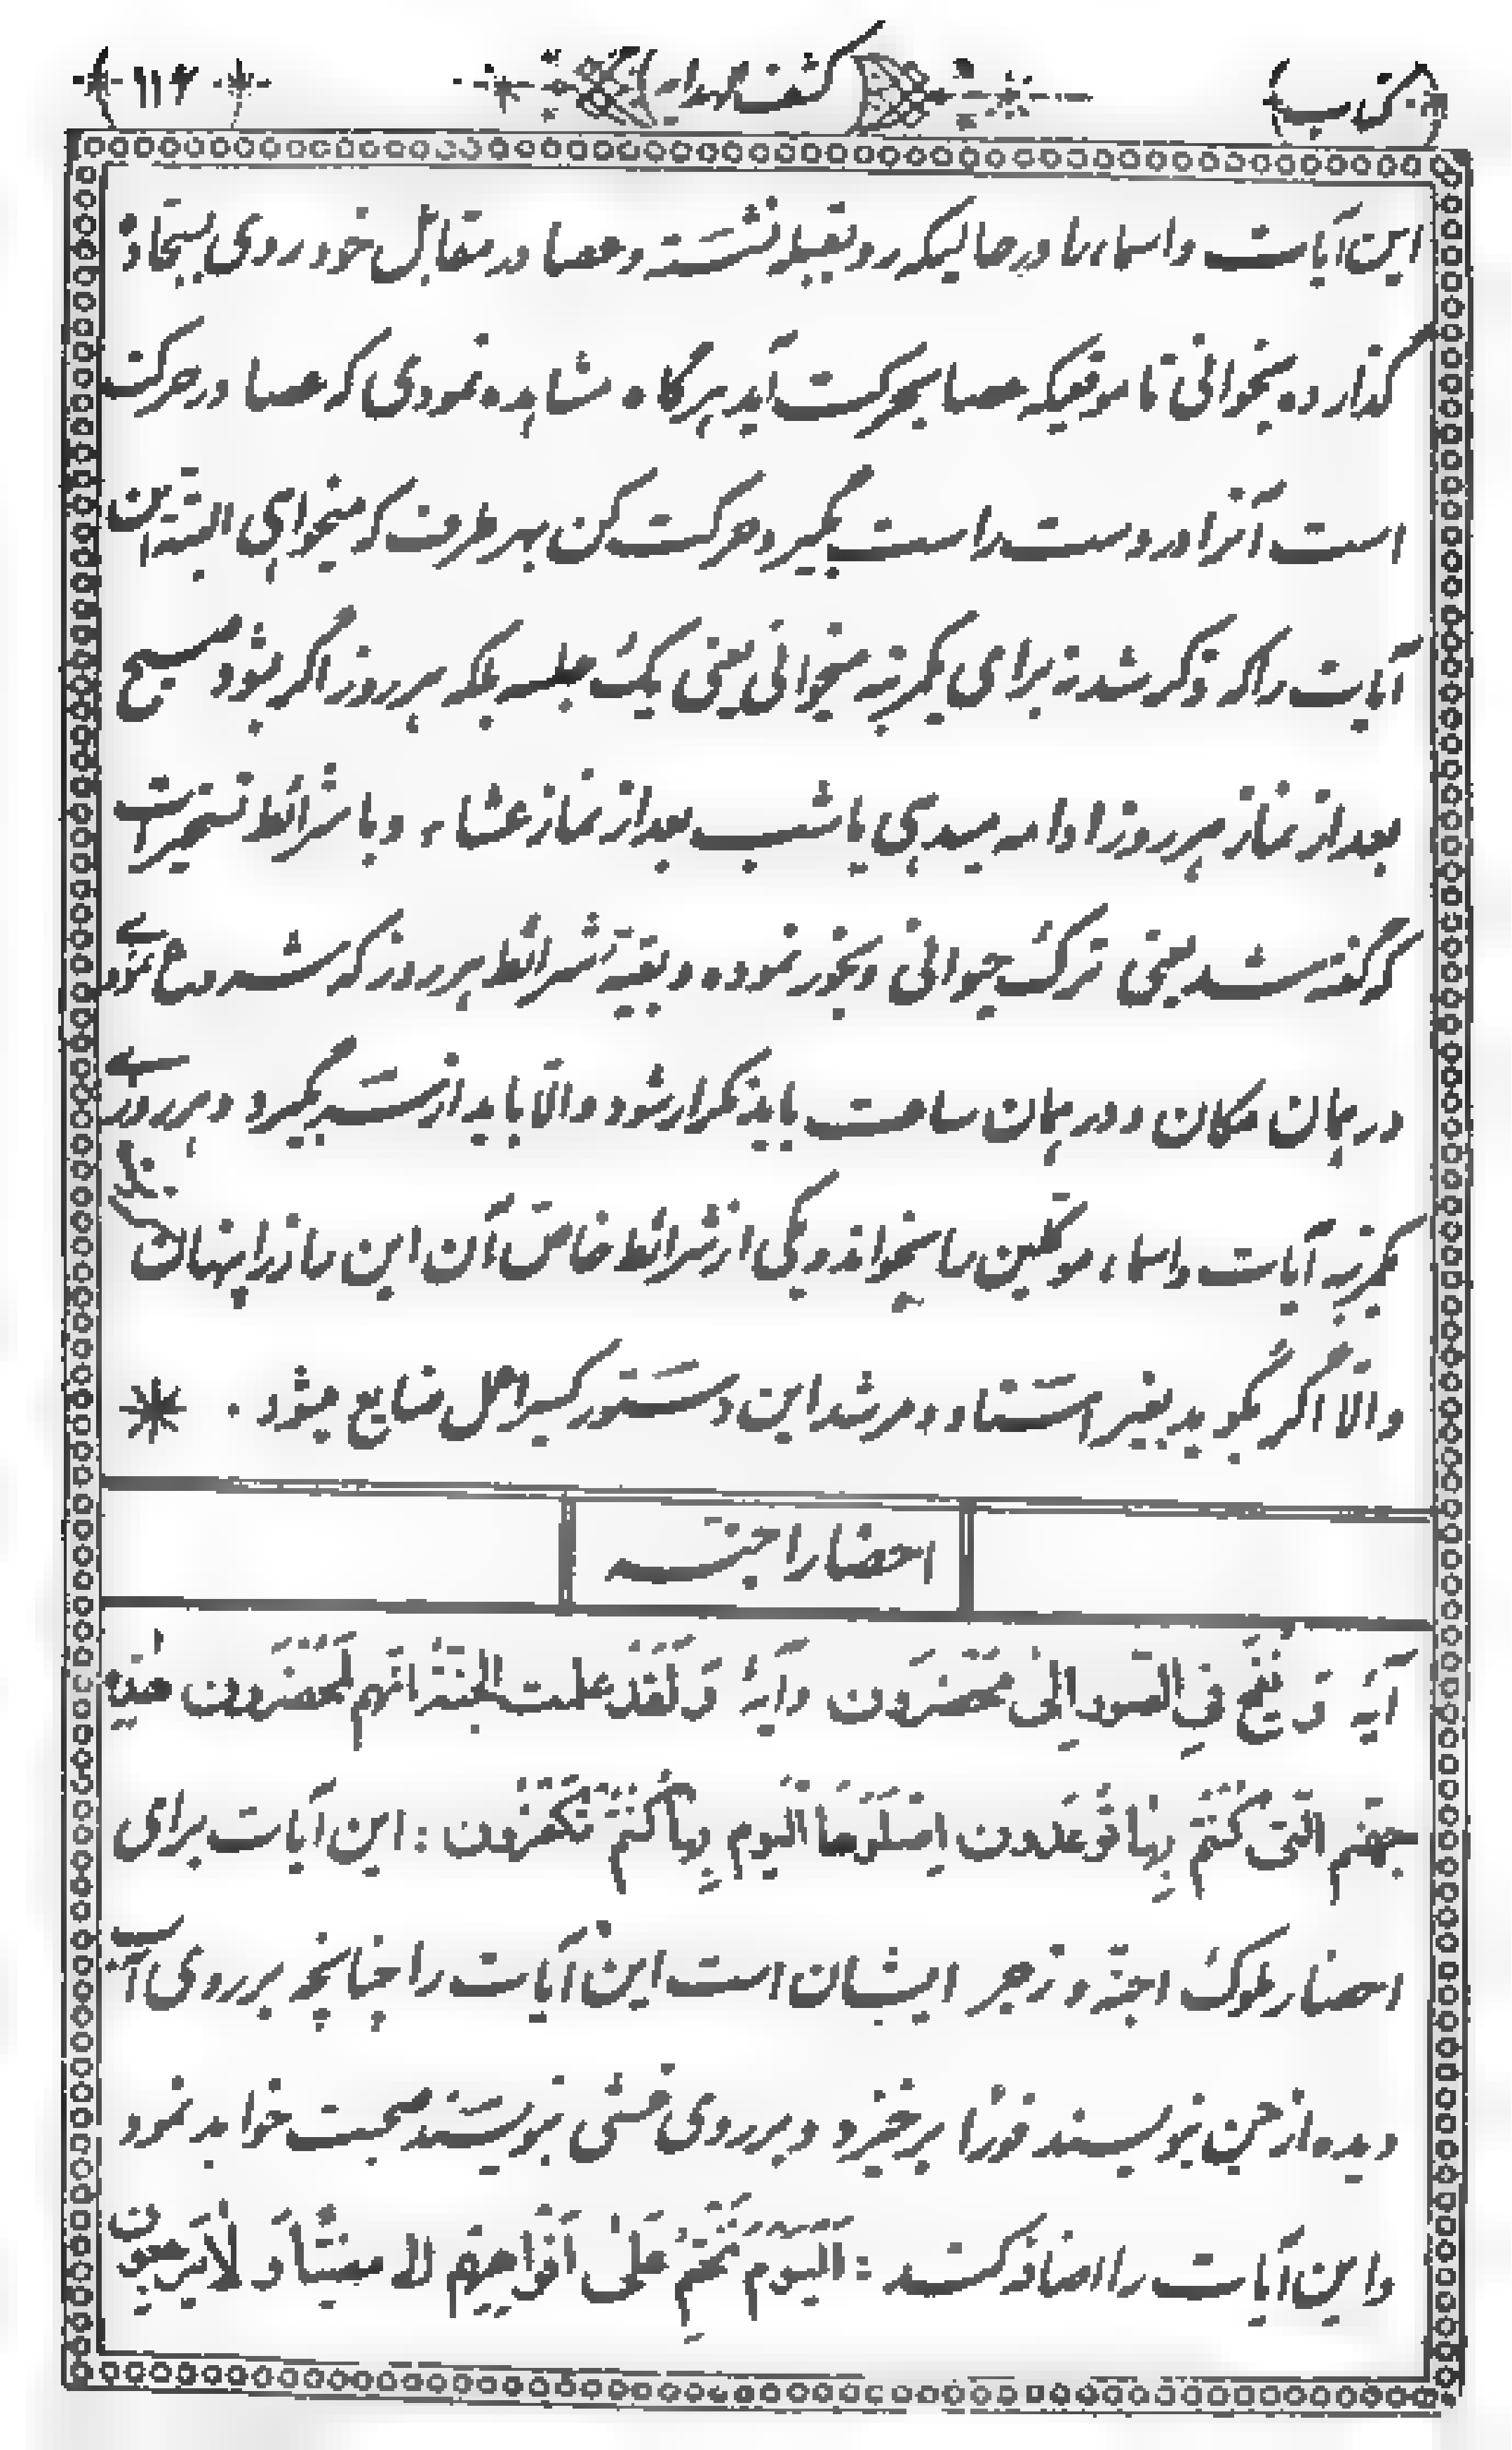 کتاب کشف الهدایه ۱۱۶
این آیات و اسماء را در حالیکه رو بقبله نشسته و عصا در مقابل خود روی سجاده
گذارده بخوانی تا موقعیکه عصا بحرکت آید هرگاه مشاهده نمودی که عصا در حرکت
است آنرا در دست راست بگیر و حرکت کن بهر طرف که میخواهی البته این
آیات را که ذکر شد نه برای یکمرتبه میخوانی یعنی یک جلسه بلکه هر روز اگر بشود صبح
بعد از نماز هر روز ادامه میدهی یا شب بعد از نماز عشاء و با شرائط تسخیرات
که گفته شد یعنی ترک حیوانی و بخور نموده و بقیه شرائط هر روز که شروع نمودے
در همان مکان و در همان ساعت باید تکرار شود والّا باید از سه بگیرد و هر روزے
یکمرتبه آیات و اسماء موکلین را بخواند و یکی از شرائط خاص آن این راز را پنهان کند
والّا اگر بگوید بغیر استاد و مرشد این دستور کسیر احل ضایع میشود .
احضار اجنه
آیهٔ وَ نُفِخَ فِی الصّورِ الی مُحْضَرُون و آیهٔ وَ لَقَدْ علمت الجِنّة انّهم لَمُحْضَرُون هٰذِهِ
جهنّم الّتی کُنْتُم بِهٰا تُوعَدُون اِصْلَوْهَا الْیَوم بِمٰا کُنْتُم تَکْفُرُون : این آیات برای
احضار ملوک اجنّه و زجر ایشان است این آیات را چنانچه بر روی آسیب
دیده از جن بنویسند فوراً برخیزد و بر روی خشتی بنویسند صحبت خواهد نمود
و این آیات را اضافه کنند : اَلْیَوْمَ نَخْتِمُ عَلٰی اَفْوٰاهِهِم الی مُضِیّاً وَ لٰا یَرْجِعُون